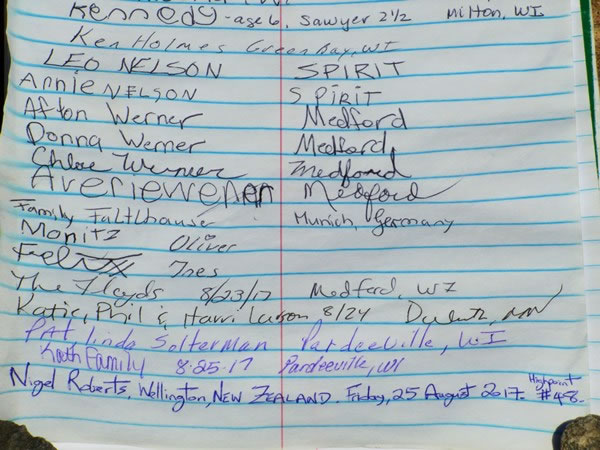 Kennedy - age 6, Sawyer 2 1/2 Milton, WI
Ken Holmes Green Bay, WI
LEO NELSON SPIRIT
Annie NELSON SPIRIT
Afton Werner Medford
Donna Werner Medford
Chloe Werner Medford
Averie Werner Medford
Family Faltlhauser Munich, Germany
Moritz Oliver
Felix Ines
The Floyds 8/23/17 Medford, WI
Katie, Phil & Harri Larson 8/24 Duluth, MN
PAt Linda Salterman Pardeeville, WI
Kath Family 8-25-17 Pardeeville, WI
Nigel Roberts, Wellington, NEW ZEALAND. Friday, 25 August 2017. Highpoint #48.